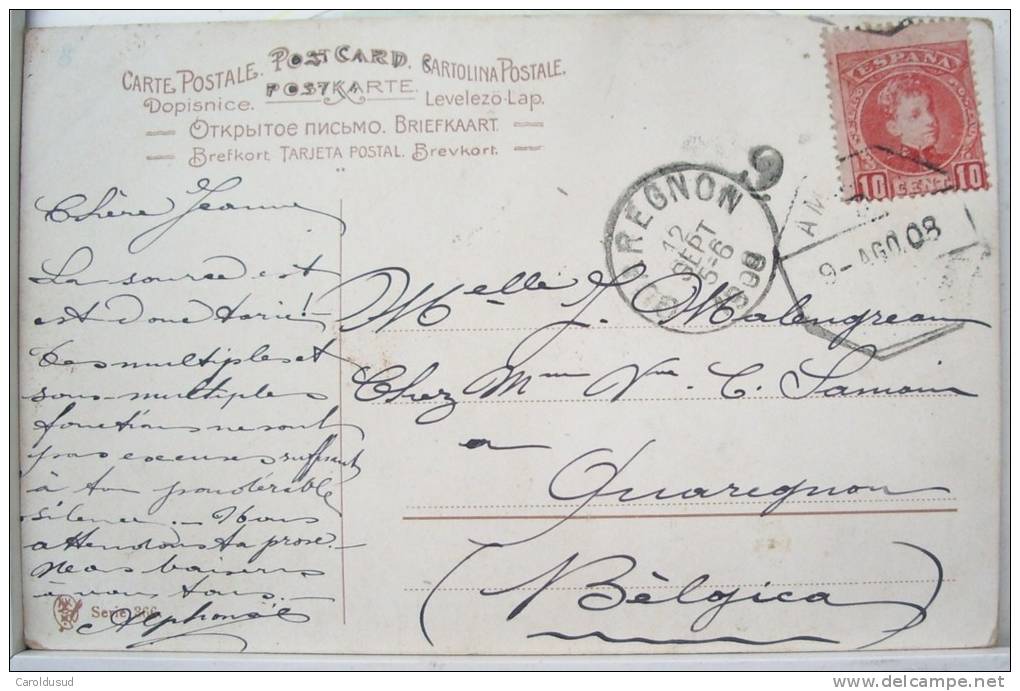 CARTE POSTALE. POSTCARD. CARTOLINA POSTALE.
Dopisnice. POSTKARTE. Levelezö-Lap.
Открытое письмо. BRIEFKAART.
Brefkort. TARJETA POSTAL. Brevkort.
ESPAÑA
10 CENT. 10
QUAREGNON
12
SEPT
5-6
1908
AM
9-AGO.08
Chère Jeanne
La source est
est donc tarie!
Les multiples et
sous-multiples
fonctions ne sont
pas excuses suffisant
à ton pondérable
silence. – Nous
attendons ta prose. –
Meas baisers
à vous tous. –
Alphonse
Melle J. Malengreau
Chez Mme Vve C. Samain
a
Quaregnon
(Bèlgica)
Serie 366
Caroldusud
delcampe.net